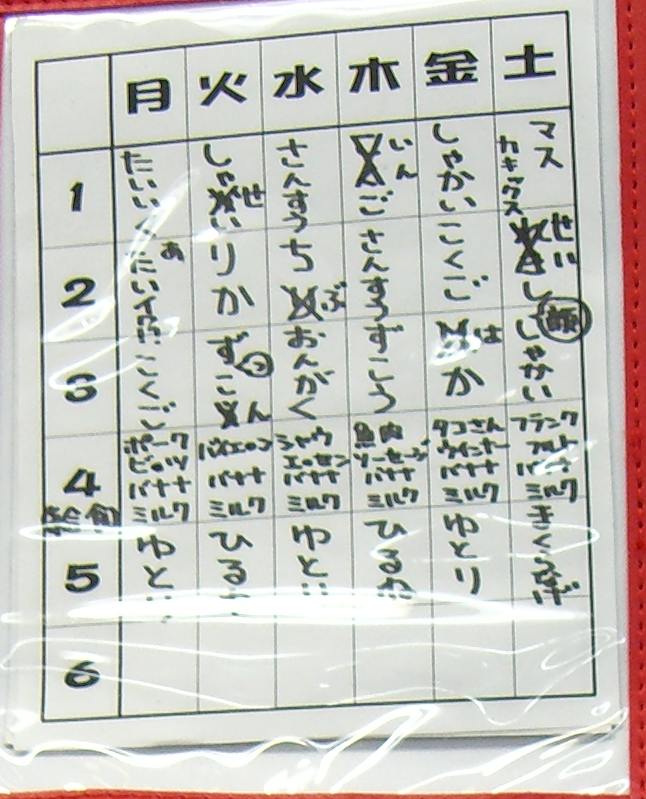 月 火 水 木 金 土
1
たいい
しゃ せい
さんすう
いん ご
しゃかい
マス カキックス
2
りか
ち ぶ
さんすう
こくご
せい し
3
こくご
ずこ ん
おんがく
ずこう
はか
しゃかい
4 給食
ポーク ビッツ バナナ ミルク
バイエルン バナナ ミルク
シャウエッセン バナナ ミルク
魚肉 ソーセージ バナナ ミルク
タコさん ウインナー バナナ ミルク
フランク フルト バナナ ミルク
5
ゆとり
ひるね
ゆとり
ひるね
ゆとり
きくらげ
6